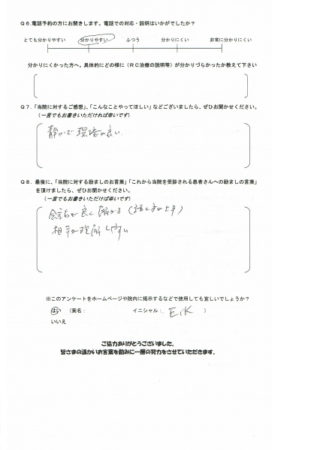 Q6.電話予約の方にお聞きします。電話での対応・説明はいかがでしたか?
とても分かりやすい 分かりやすい ふつう 分かりにくい 非常に分かりにくい
分かりにくかった方へ、具体的にどの様に(RC治療の説明等)が分かりづらかったか教えて下さい
Q7.「当院に対するご感想」、「こんなことやってほしい」などございましたら、ぜひお聞かせください。
(一言でもお書きいただければ幸いです)
静かで環境が良い
Q8.最後に、「当院に対する励ましのお言葉」「これから当院を受診される患者さんへの励ましの言葉」
を頂けましたら、ぜひお聞かせください。
(一言でもお書きいただければ幸いです)
相手が理解しやすい
※このアンケートをホームページや院内に掲示するなどで使用しても宜しいでしょうか?
はい (実名: イニシャル: E.K )
いいえ
ご協力ありがとうございました。
皆さまの温かいお言葉を励みに一層の努力をさせていただきます。